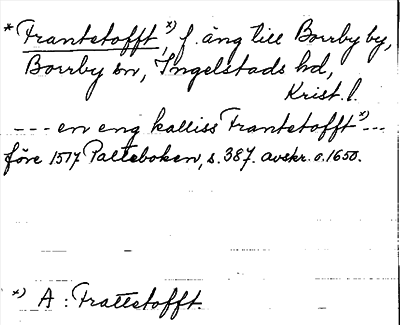 * Frantstofft x), f. äng till Borrby by,
Borrby sn, Ingelstads hd,
Krist. l.
--- en eng kalliss Frantstofft x) ---
före 1517 Palteboken, s. 387. avskr. o. 1650.
x) A: Frattstofft.